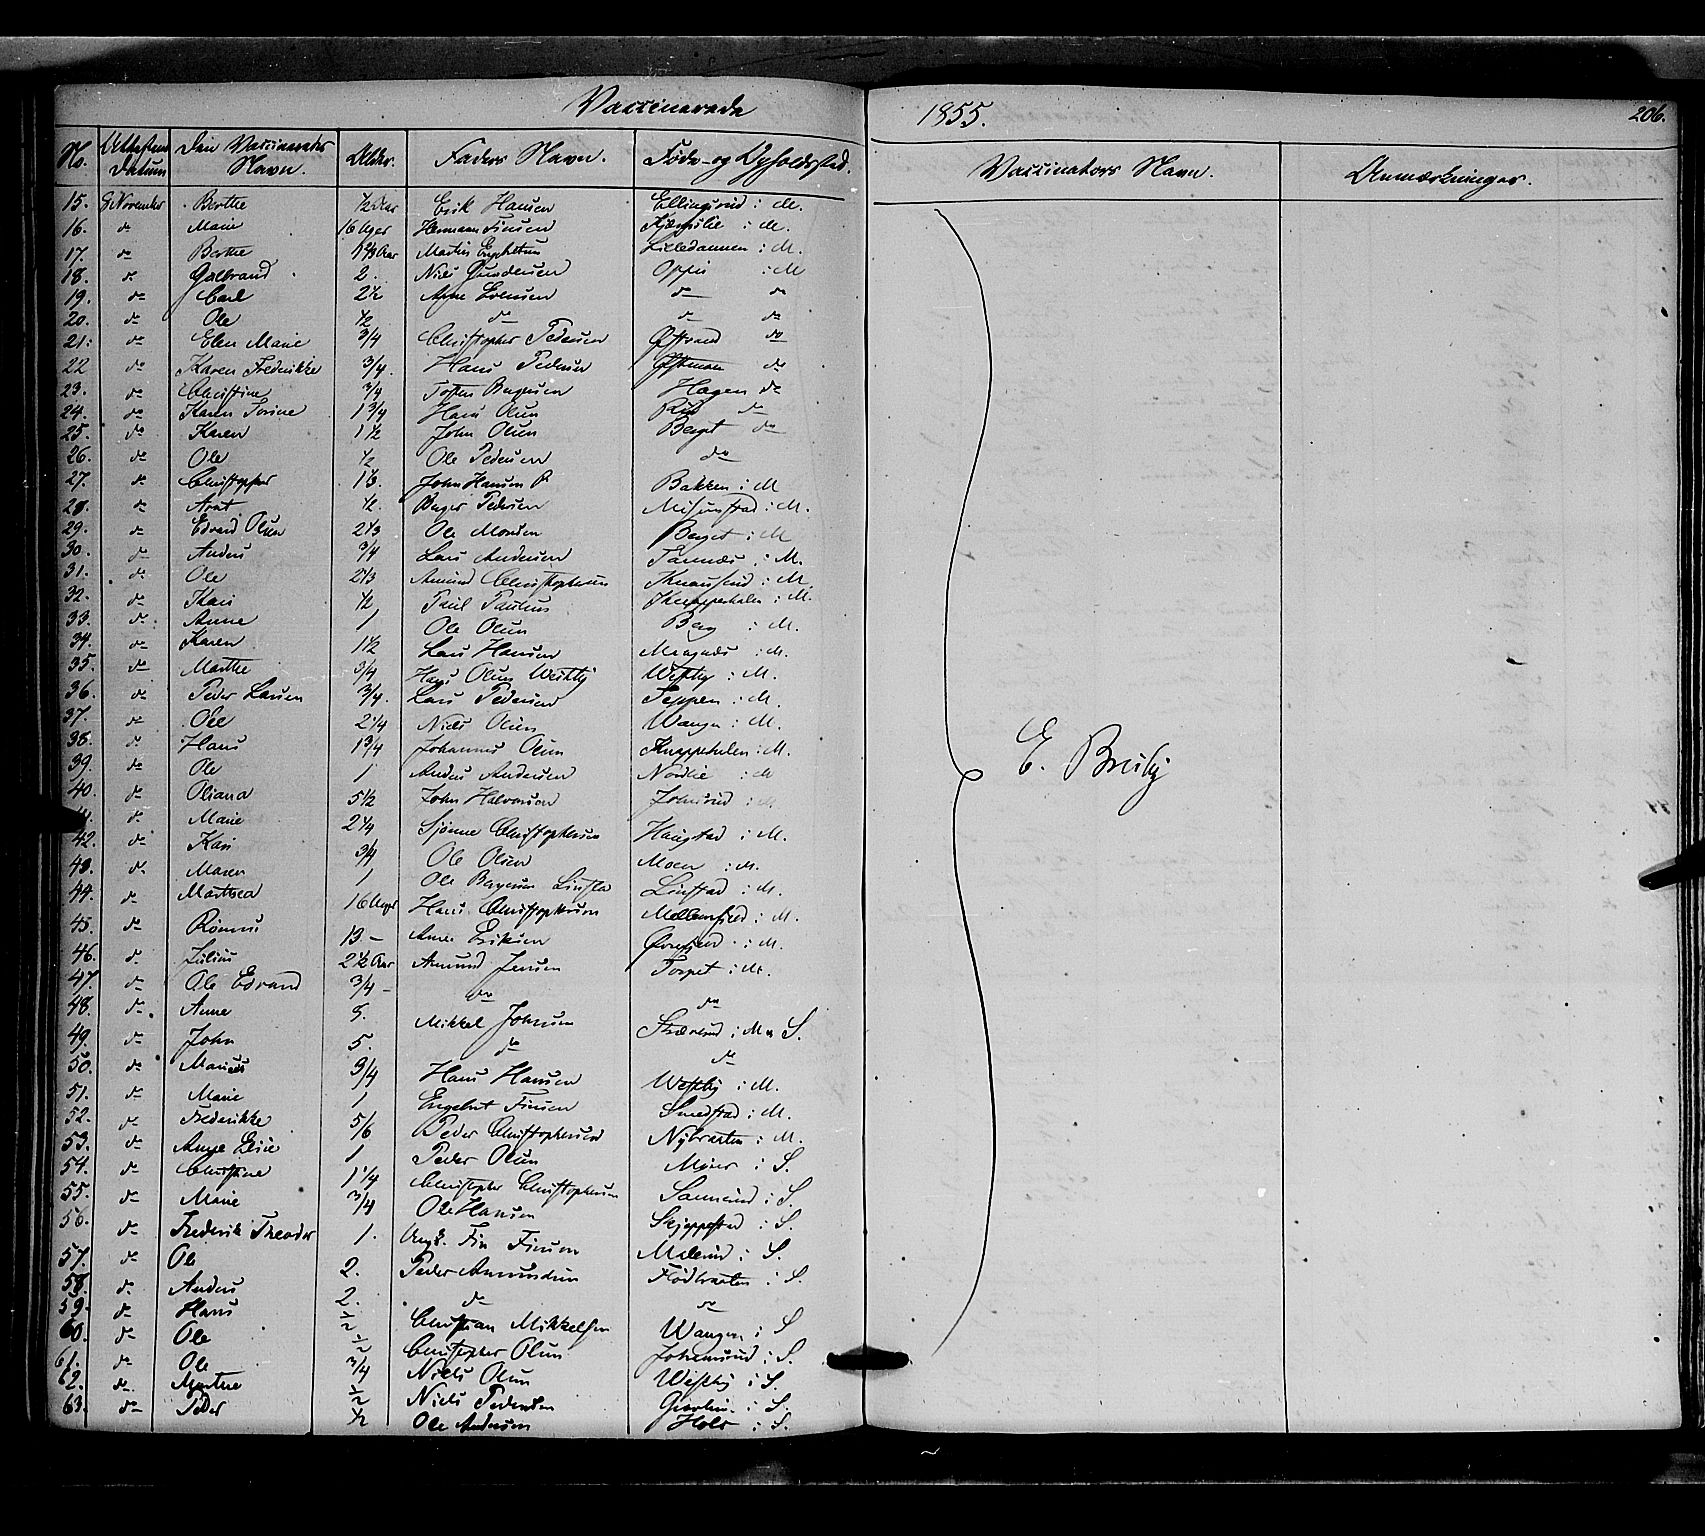 Vaccinerede 1855. 206.
No. Attestens Datum Den Vaccineredes Navn. Alder. Faders Navn. Føde- og Opholdssted. Vaccinators Navn. Anmærkninger.
15. 8 November Berthe ½ Aar Erik Hansen Ellingsrud i M.
16. do Marie 16 Uger Herman Finsen i M.
17. do Berthe Aar Martin Lilledammen i M.
18. do Gulbrand 2. Niels Gundersen Oppie i M
19. do Carl 2½ Arne do do
20. do Ole ½ do do do
21. do Elen Marie ¾ Christopher Pedersen Østrand do
22 do Karen Frederikke ¾. Hans Pedersen do
23. do Christine ¾ Torsten Hagen do
24. do Karen Torine 1¾ Hans Olsen Rud do
25. do Karen 1½ John Olsen Berget do
26. do Ole ½ Ole Pedersen do
27. do Christopher 1⅓. John Hansen Bakken i M
28. do Arnt ½. Birger Pedersen i M.
29. do Edvard Olsen 2⅓ Ole Monsen Berget i M
30. do Anders ¾ Lars Andersen i M.
31. do Ole 2⅓ Amund Christophersen i M
32. do Kari ½ Paul Paulsen i M.
33. do Anne 1 Ole Olsen Berg i M.
34. do Karen 1½ Lars Hansen i M.
35. do Marthe ¾ Hans Olsen Westby Westby i M.
36. do Peder Larsen ¾. Lars Pedersen Teppen i M.
37. do Ole 2¼ Niels Olsen Wangen i M.
38. do Hans 1¾ Johannes Olsen Knappehalen i M.
39. do Ole 1 Anders Andersen Nordlie i M
40. do Oliana 5½ John Halvorsen Johnsrud i M.
41. do Marie 2¼ Sjønne Christophersen Haugstad i M.
42. do Kari ¾ Ole Olsen Moen i M.
43. do Maren 1 Ole Bergersen Linsta Linstad i M.
44. do Mathea 16 Uger Hans Christophersen i M.
45. do Rønnus 13 – Arne Eriksen i M.
46. do Julius 2½ Aar Amund Jensen Torpet i M.
47. do Ole Edvand ¾ – do do
48. do Anne 5. Mikkel Johnsen i M & S.
49. do John 5. do do
50. do Marius ¾ Hans Hansen Westby i M.
51. do Marie 1 Engebret Finsen Smedstad i M.
52. do Frederikke 5/6 Peder Christophersen Nybraaten i M.
53. do Lisie 1 Peder Olsen i S.
54. do Christine 1¼ Christopher Christophersen i S.
55. do Marie ¾ Ole Hansen Skjeppestad i S.
56. do Frederik Theodor 1. Ungk. Fin Finsen i S.
57. do Ole 2. Peder Amundsen Flodbraaten i S.
58. do Anders 2. do do
59. do Hans ½ Christian Mikkelsen Wangen i S
60. do Ole ½ Christopher Olsen i S.
61. do Ole ¾ Niels Olsen Westby i S.
62. do Marthe ½ Niels Pedersen i S.
63. do Peder ½ Ole Andersen Hole i S.
E. Breiby